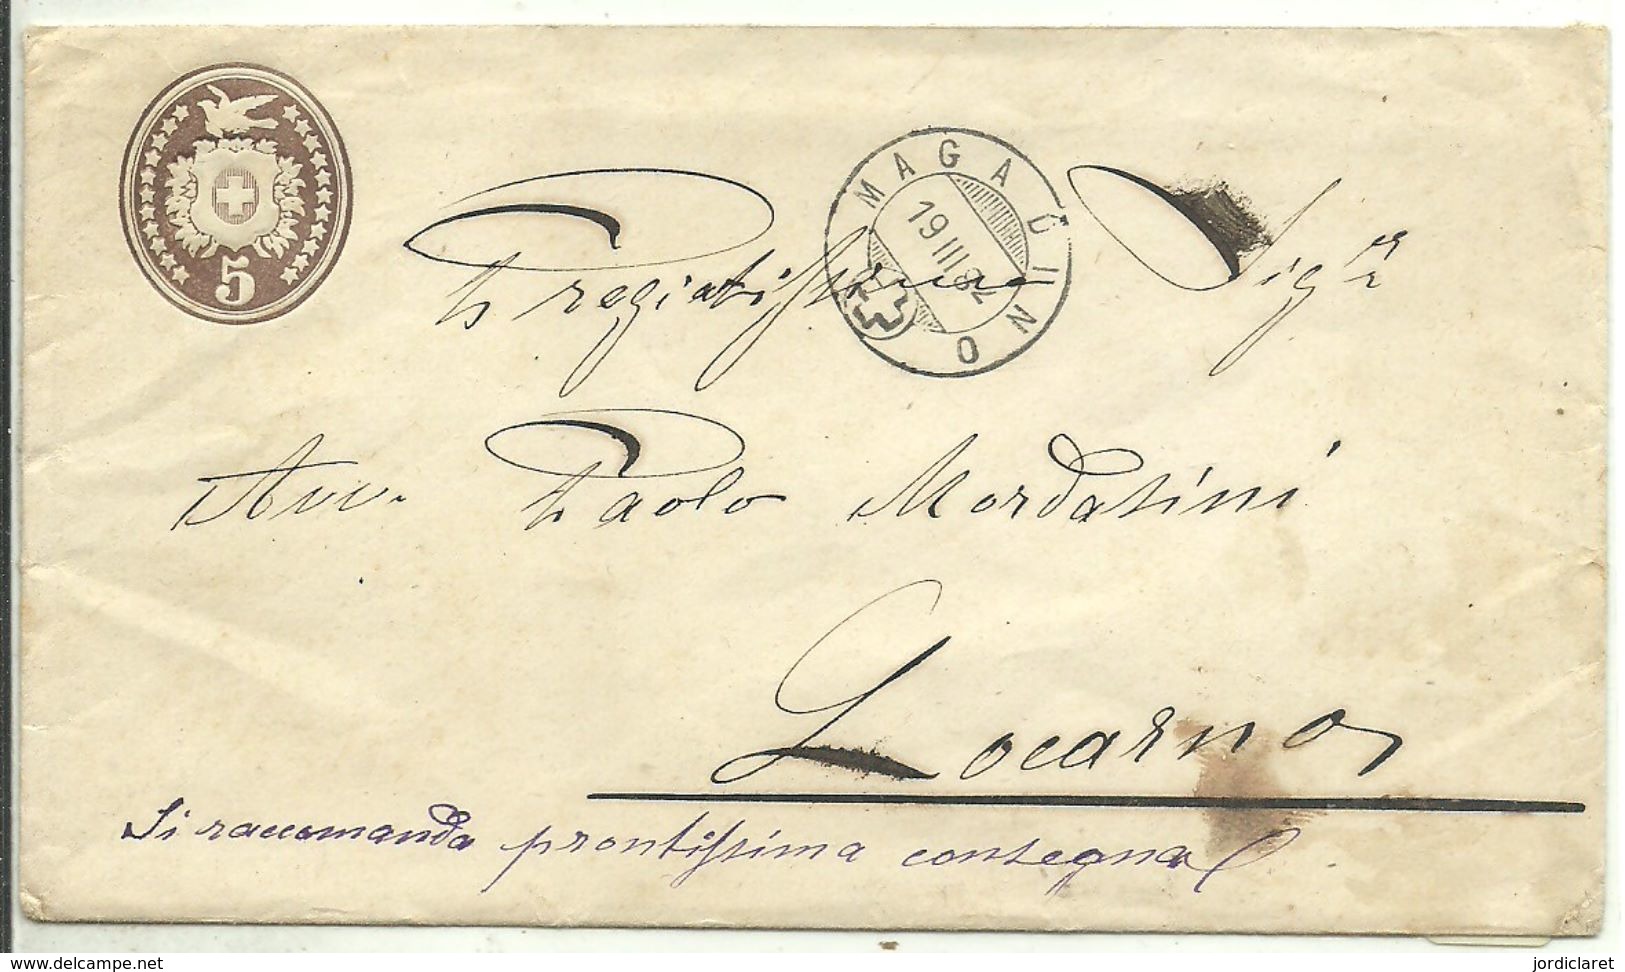 5
MAGADINO
19 III 82
Pregiatissimo Sigre
Avv. Paolo Mordasini
Locarno
Si raccomanda prontissima consegna
www.delcampe.net
jordiclaret